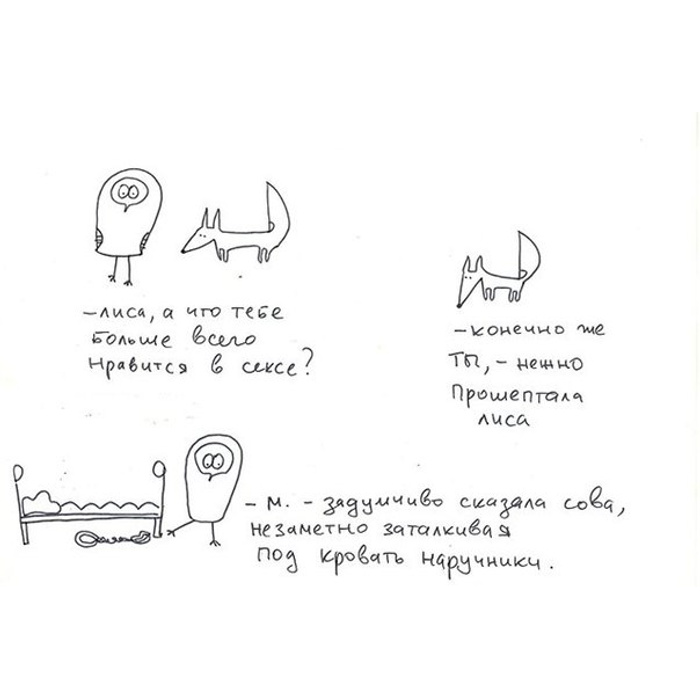 -лиса, а что тебе
больше всего
нравится в сексе?
-конечно же
ты, - нежно
прошептала
лиса
- м. - задумчиво сказала сова,
незаметно заталкивая
под кровать наручники.